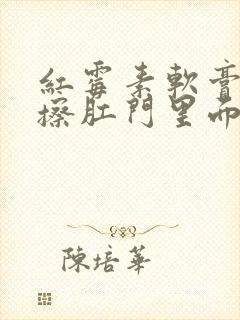 紅霉素軟膏
擦肛門里面
陳培華